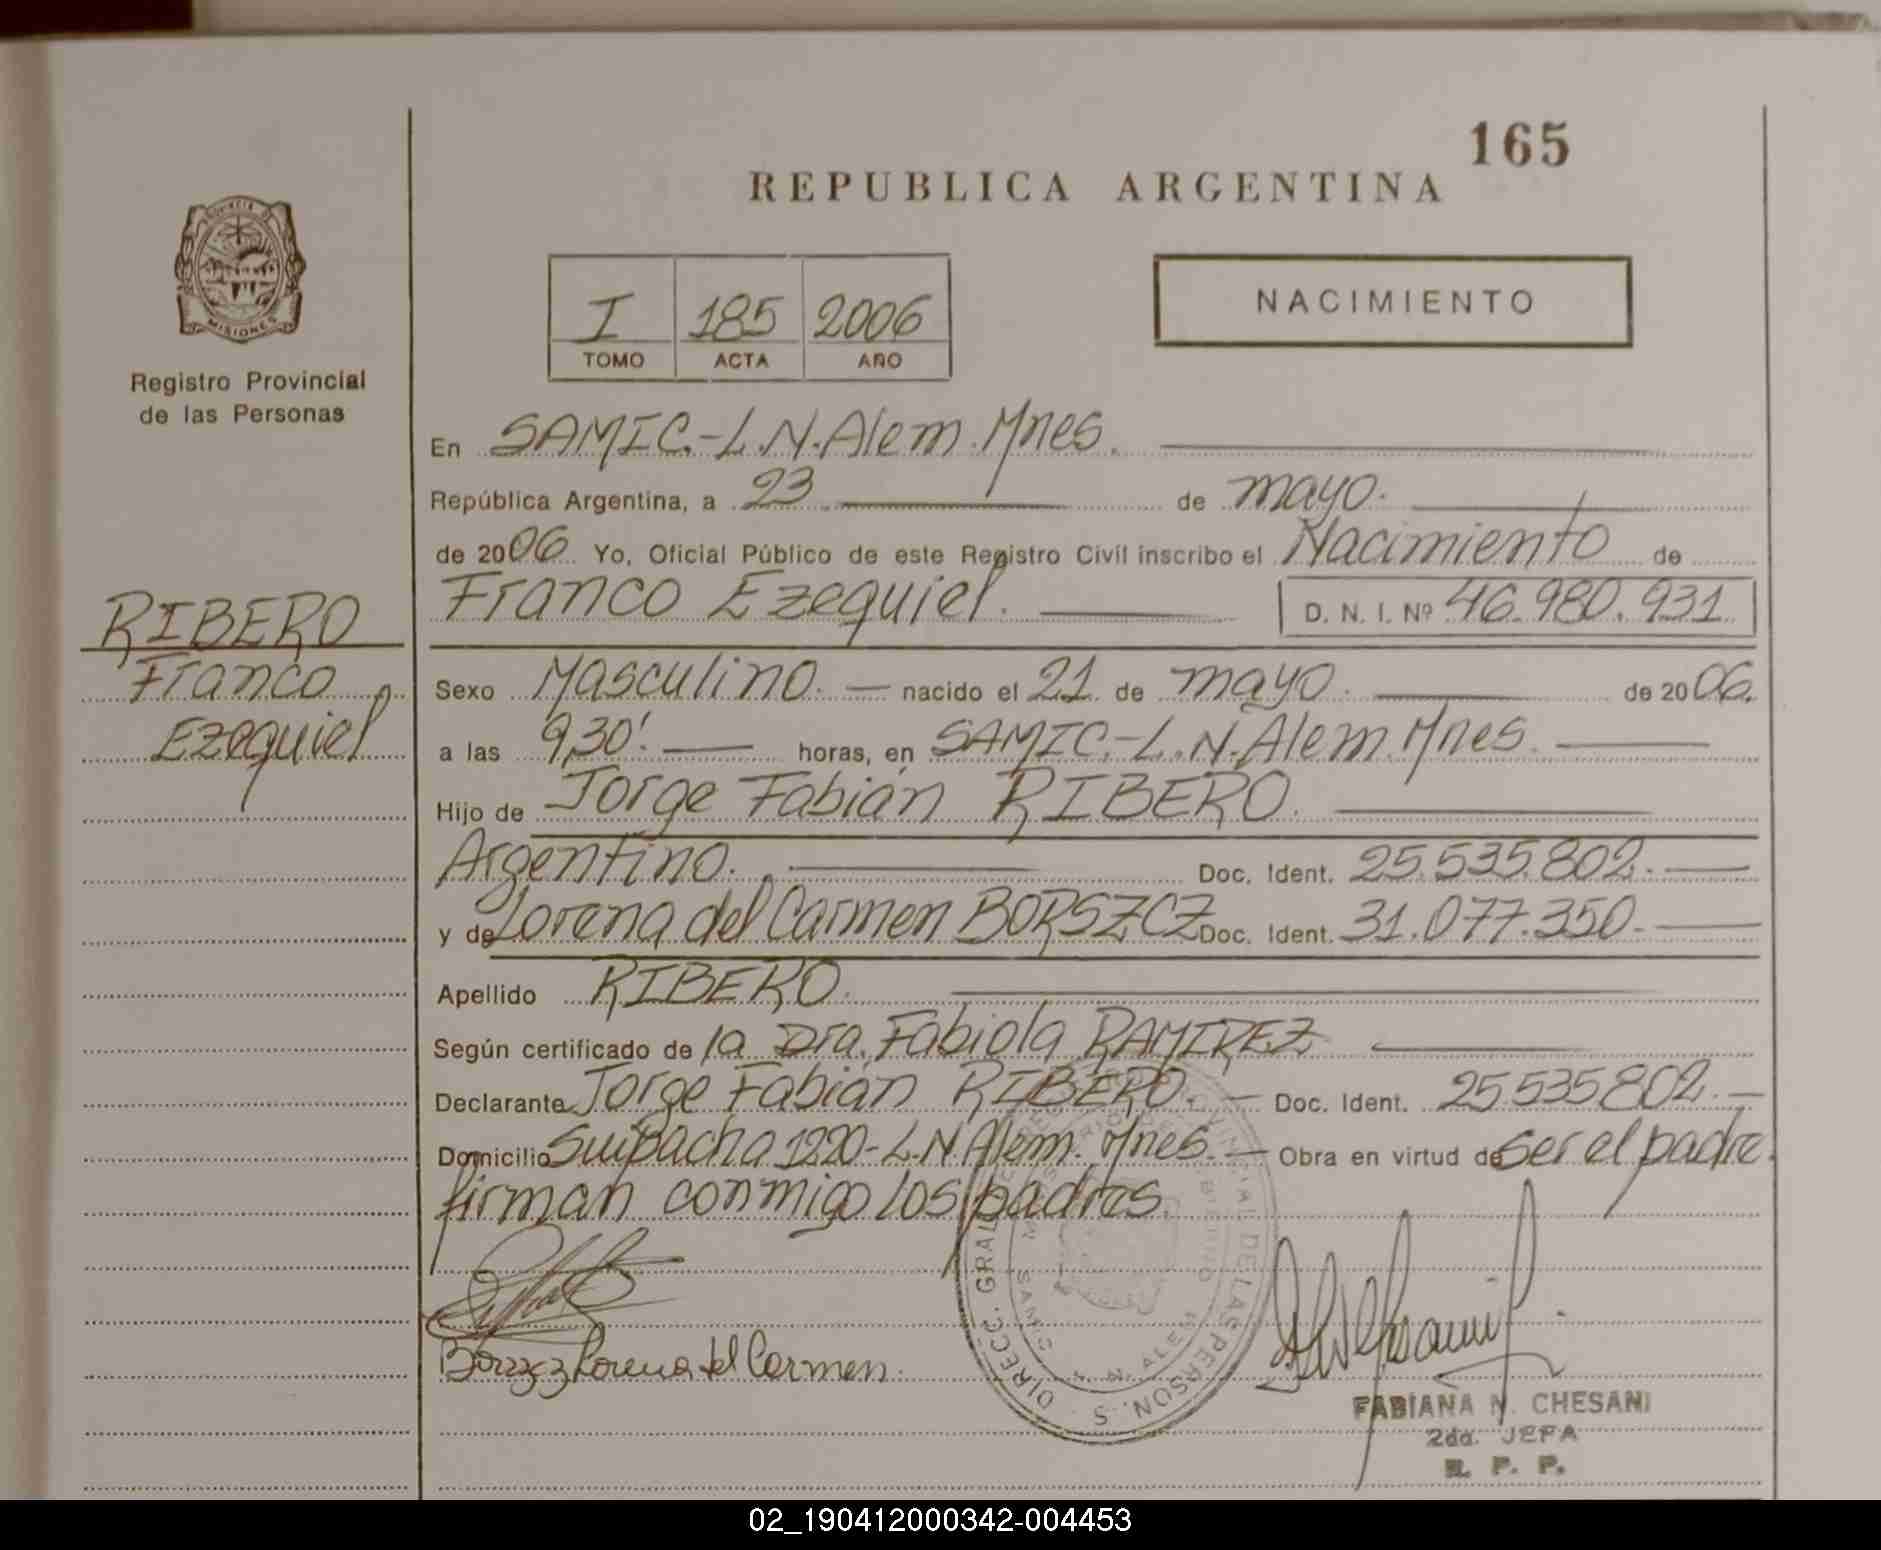 165
REPUBLICA ARGENTINA
PROVINCIA DE
MISIONES
Registro Provincial
de las Personas
I 185 2006
TOMO ACTA AÑO
NACIMIENTO
En SAMIC.-L.N.Alem.Mnes.
República Argentina, a 23 de mayo.
de 2006. Yo, Oficial Público de este Registro Civil inscribo el Nacimiento de
Franco Ezequiel. D. N. I. Nº 46.980.931
RIBERO
Franco
Ezequiel
Sexo Masculino. nacido el 21 de mayo. de 2006.
a las 9,30'. horas, en SAMIC.-L.N.Alem.Mnes.
Hijo de Jorge Fabián RIBERO.
Argentino. Doc. Ident. 25.535.802.
y de Lorena del Carmen BORSZCZ Doc. Ident. 31.077.350.
Apellido RIBERO.
Según certificado de la Dra. Fabiola RAMIREZ
Declarante Jorge Fabián RIBERO. Doc. Ident. 25535802.
Domicilio Suipacha 1220-L.N.Alem. Mnes. Obra en virtud de ser el padre.
firman conmigo los padres.
Lorena del Carmen.
DIRECC. GRAL. DE LAS PERSON.S
L. N. ALEM
FABIANA N. CHESANI
2da. JEFA
R. P. P.
02_190412000342-004453